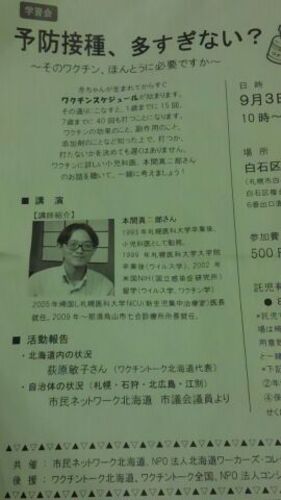 学習会
予防接種、多すぎない？
～そのワクチン、ほんとうに必要ですか～
赤ちゃんが生まれてからすぐ
ワクチンスケジュールが始まります。
その通りにこなすと、1歳までに15回、
7歳までに40回も打つことになります。
ワクチンの効果のこと、副作用のこと、
添加物のことなど知った上で、打つか、
打たないかを決めても遅くはありません。
ワクチンに詳しい小児科医、本間真二郎さん
のお話を聴いて、一緒に考えましょう！
日 時
9月3日
10時～
場 所
白石区
(札幌市白
6番出口
参加費
500
託児
■ 講 演
【講師紹介】
本間真二郎さん
1993年札幌医科大学卒業後、
小児科医として勤務。
1999年札幌医科大学大学院
卒業後(ウイルス学)、2002年
米国NIH(国立感染症研究所)
留学(ウイルス学、ワクチン学)
2005年帰国し札幌医科大学NICU(新生児集中治療室)医長
就任。2009年～那須烏山市七合診療所所長就任。
■ 活動報告
・北海道内の状況
荻原敏子さん (ワクチントーク北海道代表)
・自治体の状況 (札幌・石狩・北広島・江別)
市民ネットワーク北海道 市議会議員より
共 催 : 市民ネットワーク北海道、NPO法人北海道ワーカーズ・コレ
後 援 : ワクチントーク北海道、ワクチントーク全国、NPO法人コンシ